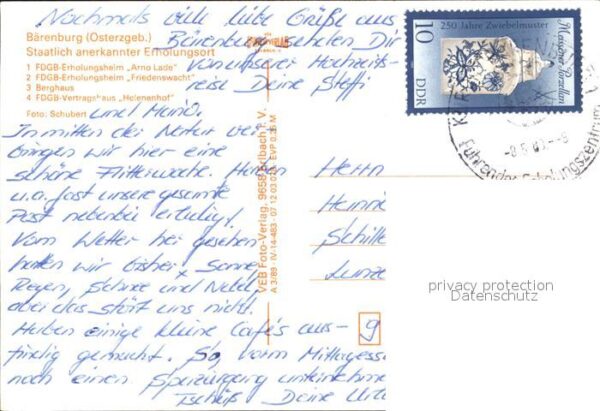 Nochmals viele liebe Grüße aus
Bärenburg senden Dir
von unserer Hochzeits-
reise Deine Steffi
und Heino.
Inmitten der Natur ver-
bringen wir hier eine
schöne Flitterwoche. Haben
u.a. fast unsere gesamte
Post nebenbei erledigt.
Vom Wetter her gesehen
hatten wir bisher Sonne,
Regen, Schnee und Nebel,
aber das stört uns nicht.
Haben einige kleine Cafés aus-
findig gemacht. So, vorm Mittagess
noch einen Spaziergang unternehme
Tschüß Deine
Bärenburg (Osterzgeb.)
Staatlich anerkannter Erholungsort
1 FDGB-Erholungsheim „Arno Lade"
2 FDGB-Erholungsheim „Friedenswacht"
3 Berghaus
4 FDGB-Vertragshaus „Helenenhof"
Foto: Schubert
VEB Foto-Verlag, 9658 Erlbach i. V.
A 3/89 · IV-14-483 · 07 12 03 EVP 0,35 M
250 Jahre Zwiebelmuster
Meissener Porzellan
10
DDR
Herrn
Schille
9
privacy protection
Datenschutz